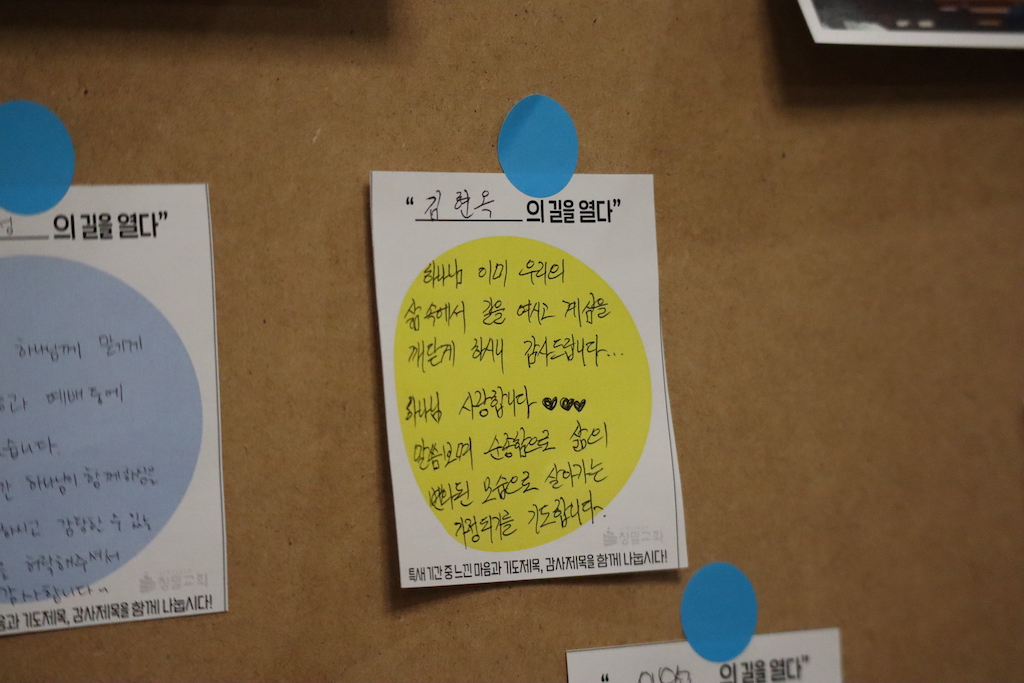 의 길을 열다”
하나님께 맡기게
예배 등에
하나님이 함께하심을
하시고 감당할 수 있는
허락해주셔서
감사합니다~
창일교회
마음과 기도제목, 감사제목을 함께 나눕시다!
“ 김현옥 의 길을 열다”
하나님 이미 우리의
삶 속에서 길을 여시고 계심을
깨닫게 하시니 감사드립니다...
하나님 사랑합니다 ♥♥♥
말씀보며 순종함으로 삶의
변화된 모습으로 살아가는
가정되기를 기도합니다~
창일교회
특새기간 중 느낀 마음과 기도제목, 감사제목을 함께 나눕시다!
“ 의 길을 열다”